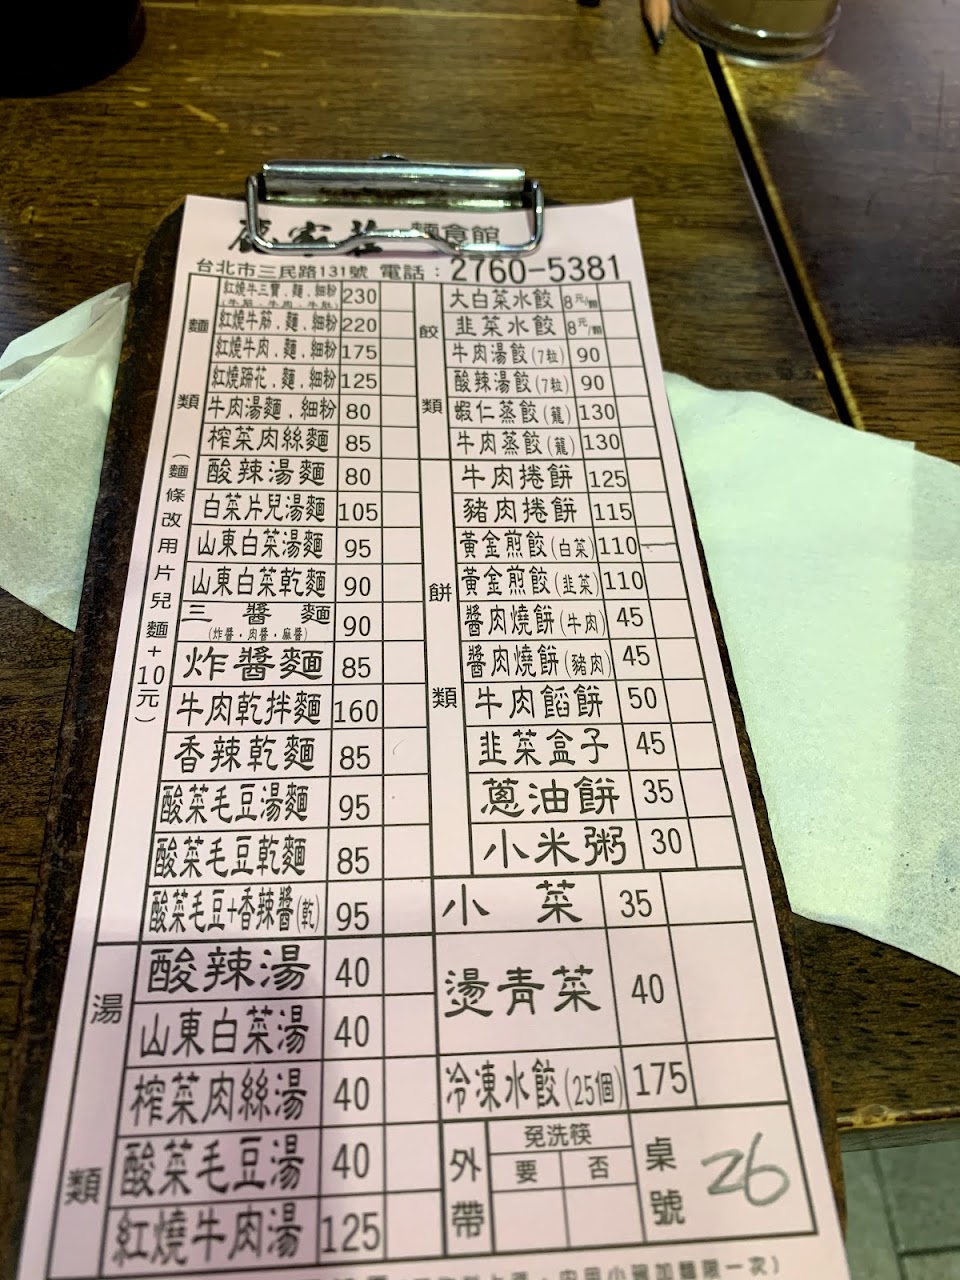 麵食館
台北市三民路131號 電話：2760-5381
麵類（麵條改用片兒麵+10元）
紅燒牛三寶．麵．細粉 230
紅燒牛筋．麵．細粉 220
紅燒牛肉．麵．細粉 175
紅燒蹄花．麵．細粉 125
牛肉湯麵．細粉 80
榨菜肉絲麵 85
酸辣湯麵 80
白菜片兒湯麵 105
山東白菜湯麵 95
山東白菜乾麵 90
三醬麵 90
(炸醬．肉醬．麻醬)
炸醬麵 85
牛肉乾拌麵 160
香辣乾麵 85
酸菜毛豆湯麵 95
酸菜毛豆乾麵 85
酸菜毛豆+香辣醬(乾) 95
湯類
酸辣湯 40
山東白菜湯 40
榨菜肉絲湯 40
酸菜毛豆湯 40
紅燒牛肉湯 125
餃類
大白菜水餃 8元/顆
韭菜水餃 8元/顆
牛肉湯餃(7粒) 90
酸辣湯餃(7粒) 90
蝦仁蒸餃(籠) 130
牛肉蒸餃(籠) 130
餅類
牛肉捲餅 125
豬肉捲餅 115
黃金煎餃(白菜) 110
黃金煎餃(韭菜) 110
醬肉燒餅(牛肉) 45
醬肉燒餅(豬肉) 45
牛肉餡餅 50
韭菜盒子 45
蔥油餅 35
小米粥 30
小菜 35
燙青菜 40
冷凍水餃(25個) 175
外帶
免洗筷
要 否
桌號 26